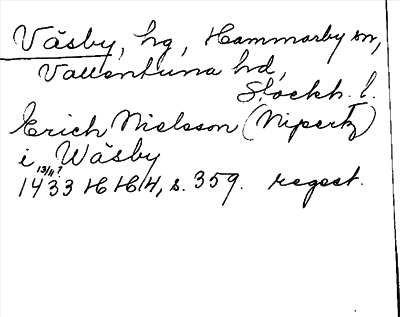 Väsby, hg, Hammarby sn,
Vallentuna hd,
Stockh. l.
Erich Nielsson (Nipertz)
i Wäsby
13/11?
1433 HH 4, s. 359. regest.